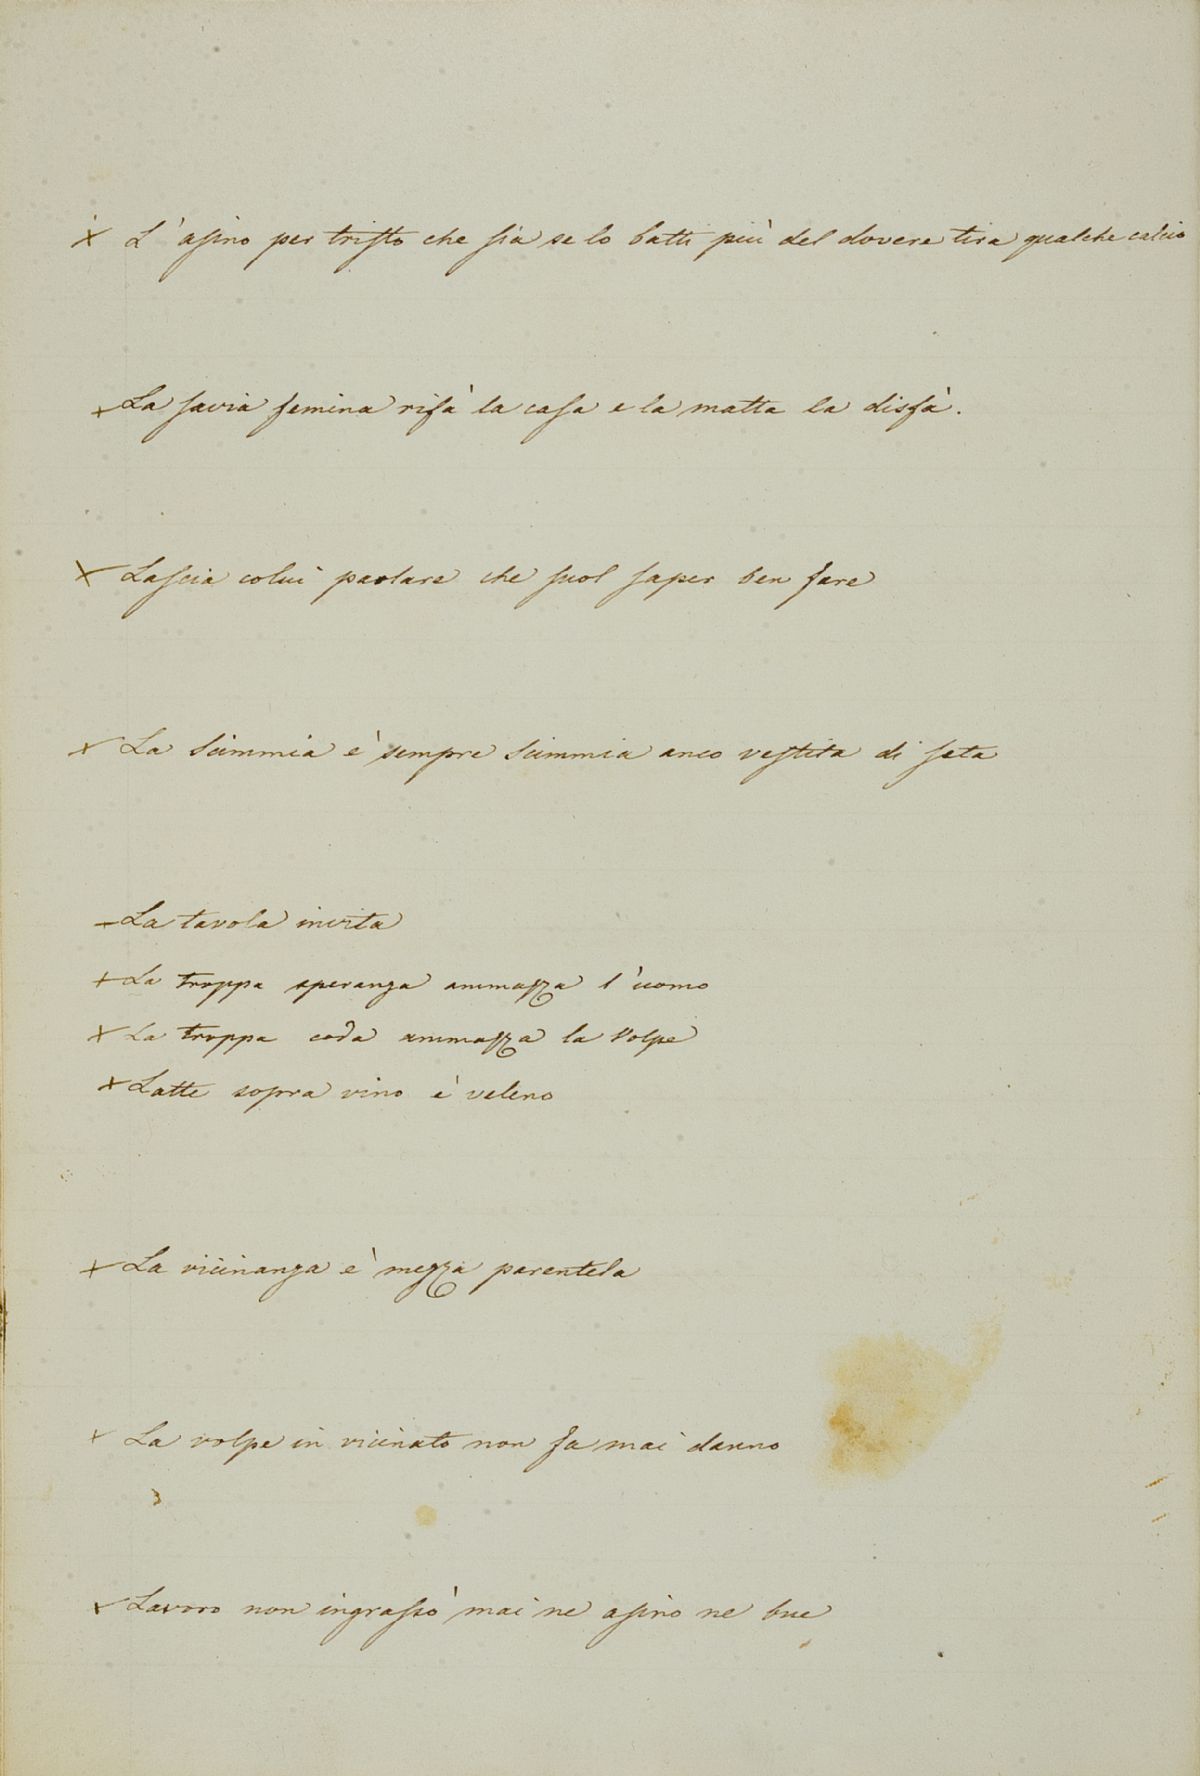 x L'asino per tristo che sia se lo batti più del dovere tira qualche calcio
x La savia femina rifà la casa e la matta la disfà.
x Lascia colui parlare che suol saper ben fare
x La scimmia è sempre scimmia anco vestita di seta
- La tavola invita
x La troppa speranza ammazza l'uomo
x La troppa coda ammazza la volpe
x Latte sopra vino è veleno
x La vicinanza è mezza parentela
x La volpe in vicinato non fa mai danno
x Lavoro non ingrassò mai ne asino ne bue